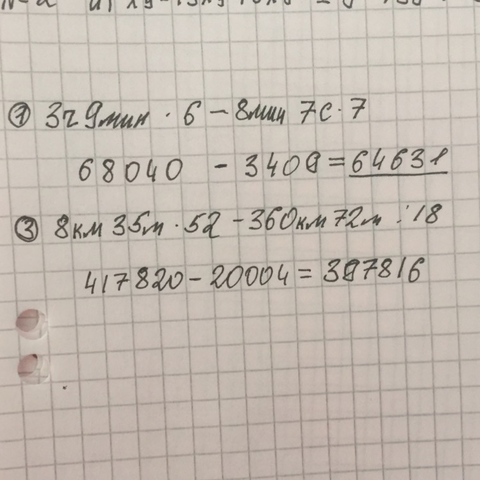 ① 3ч 9мин · 6 – 8мин 7с · 7
68040 - 3409 = 64631
③ 8км 35м · 52 - 360км 72м : 18
417820 - 20004 = 397816